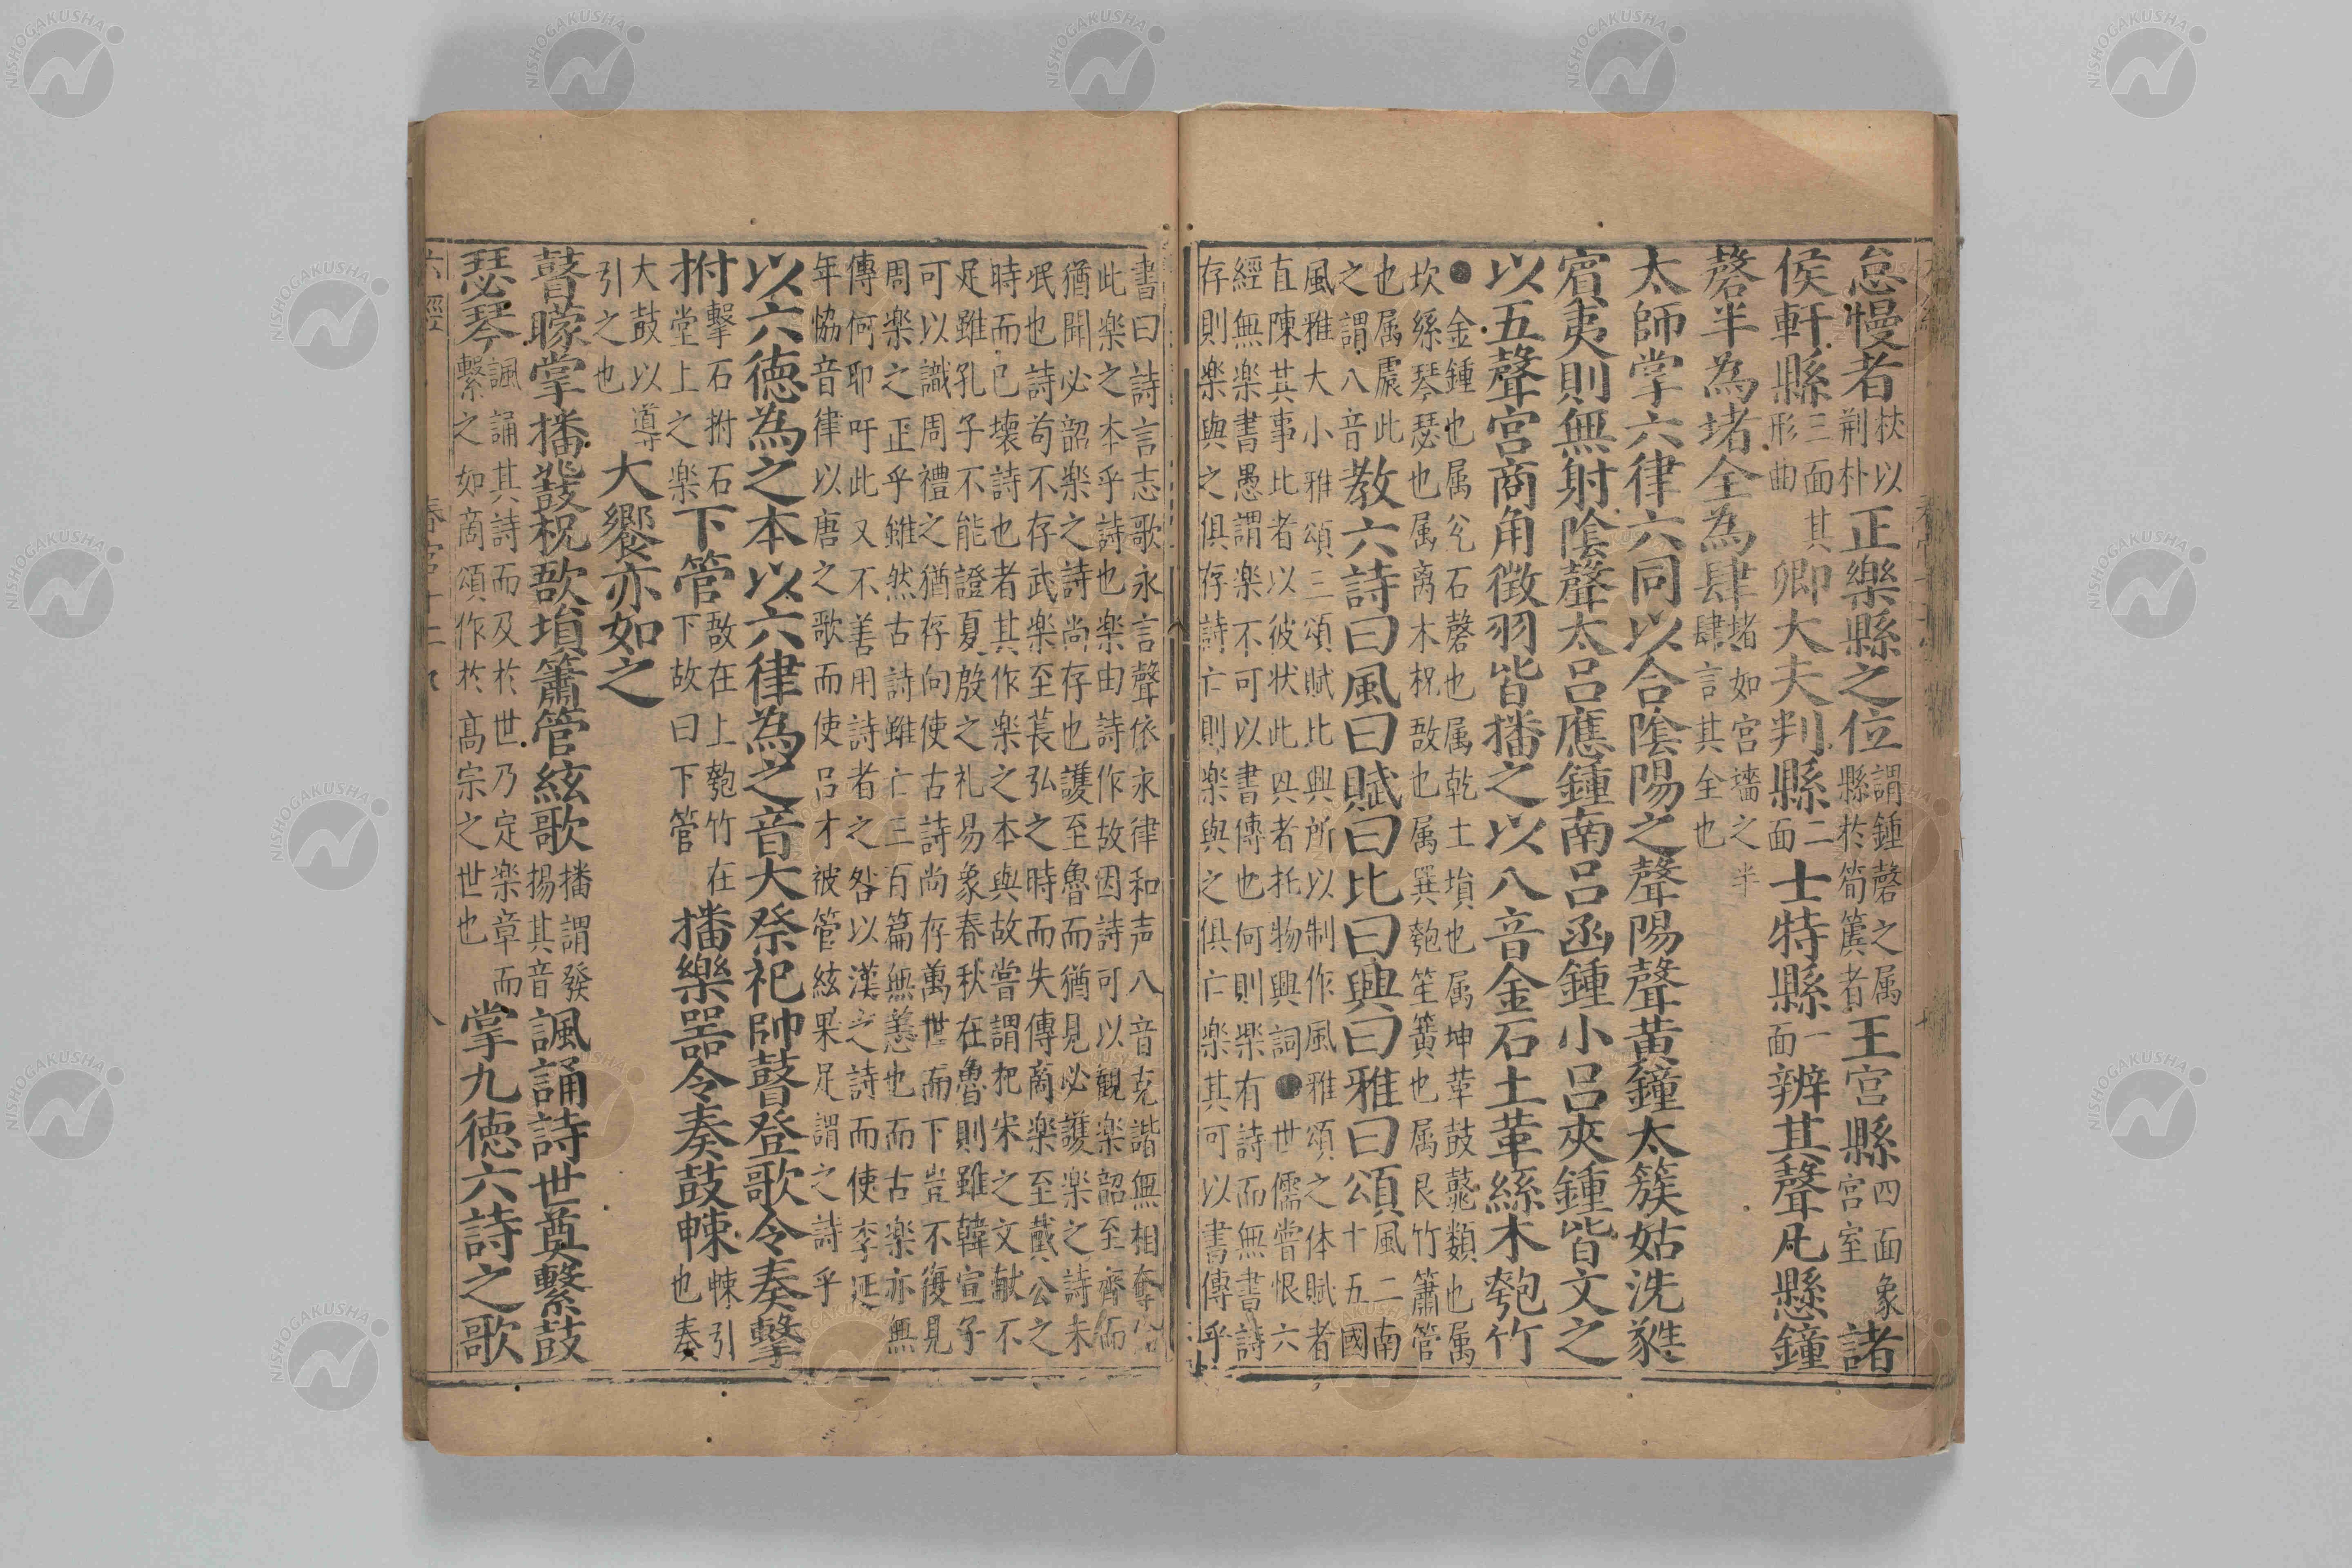 怠慢者扶以荆朴正樂縣之位謂鍾磬之属縣於筍簴者王宮縣四面象宮室諸
侯軒縣三面其形曲卿大夫判縣二面士特縣一面辨其聲凡懸鐘
磬半為堵全為肆堵如宮墻之半肆言其全也
太師掌六律六同以合陰陽之聲陽聲黃鐘太簇姑洗蕤
賓夷則無射陰聲太呂應鍾南呂函鍾小呂夾鍾皆文之
以五聲宮商角徵羽皆播之以八音金石土革絲木匏竹
●金鍾也属兊石磬也属乾土塤也属坤革鼓鼗類也属
坎絲琴瑟也属离木柷敔也属巽匏笙簧也属艮竹簫管
也属震此之謂八音教六詩曰風曰賦曰比曰興曰雅曰頌風二南十五國
風雅大小雅頌三頌賦比興所以制作風雅頌之体賦者
直陳其事比者以彼状此興者托物興詞●世儒嘗恨六
經無楽書愚謂楽不可以書傳也何則楽有詩而無書詩
存則楽與之俱存詩亡則楽與之俱亡楽其可以書傳乎
書曰詩言志歌永言聲依永律和声八音克諧無相奪倫
此楽之本乎詩也楽由詩作故因詩可以観楽韶至齊而
猶聞必韶楽之詩尚存也頀至魯而猶見必頀楽之詩未
泯也詩苟不存武楽至萇弘之時而失傳商楽至戴公之
時而已壊詩也者其作楽之本與故嘗謂杞宋之文献不
足雖孔子不能證夏殷之礼易象春秋在魯則雖韓宣子
可以識周禮之猶存向使古詩尚存萬世而下豈不復見
周楽之正乎雖然古詩雖亡三百篇無恙也而古楽亦無
傳何耶吁此又不善用詩者之咎以漢之詩而使李延
年恊音律以唐之歌而使呂才被管絃果足謂之詩乎
以六德為之本以六律為之音大祭祀帥瞽登歌令奏擊
拊擊石拊石堂上之楽下管敔在上匏竹在下故曰下管播樂器令奏鼓𣌾𣌾引也奏
大鼓以導引之也大饗亦如之
瞽矇掌播鼗柷敔塤簫管絃歌播謂發揚其音諷誦詩世奠繫鼓
瑟琴諷誦其詩而及於世乃定楽章而繫之如商頌作於高宗之世也掌九德六詩之歌